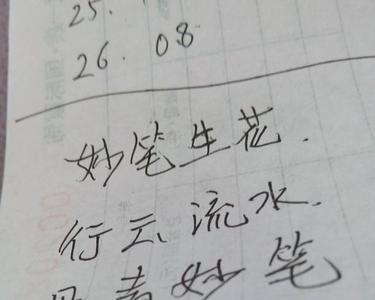 25.
26. 08
妙笔生花.
行云流水.
丹青妙笔